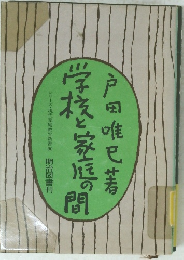 戸田唯巳著
学校と家庭の間
明治図書刊